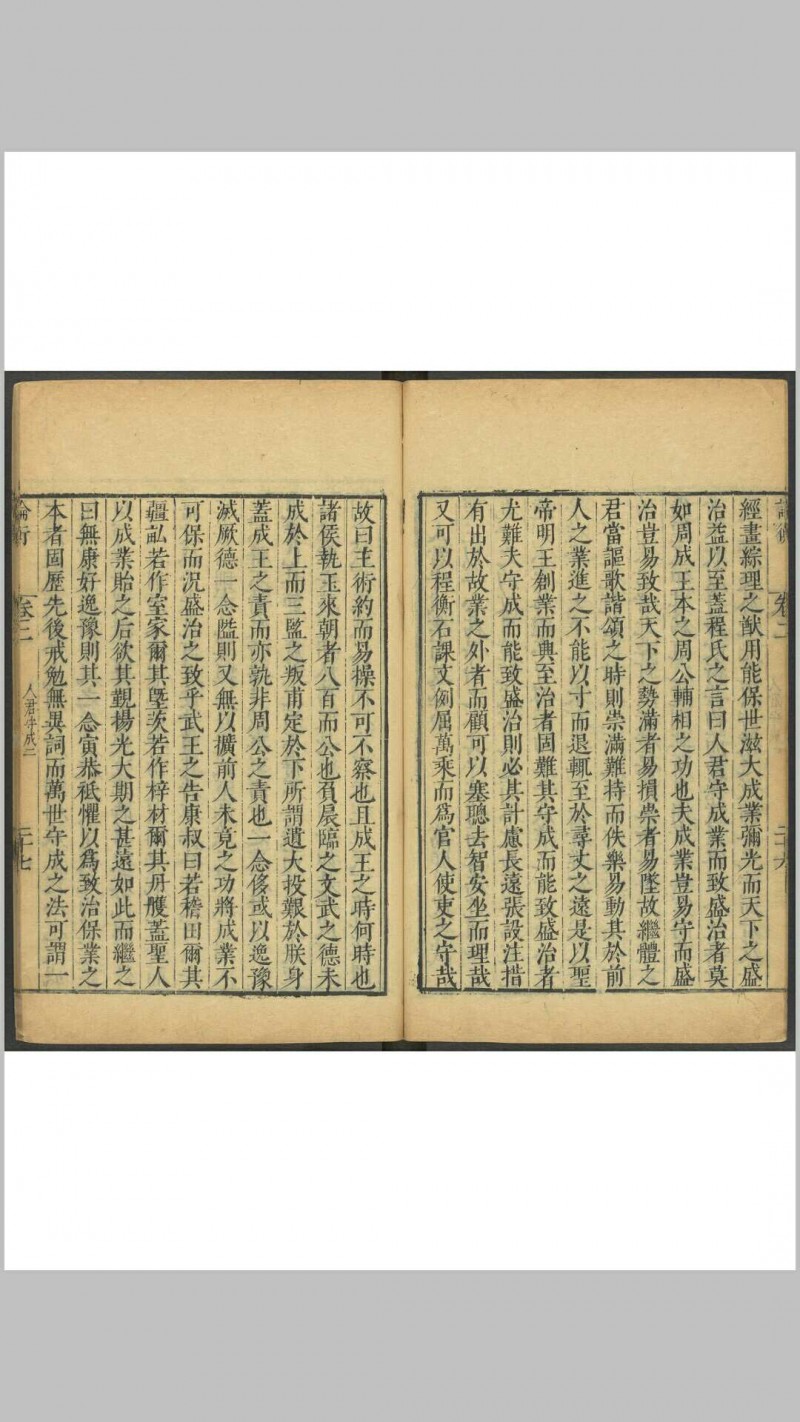 經畫綜理之猷用能保世滋大成業彌光而天下之盛
治益以至蓋程氏之言曰人君守成業而致盛治者莫
如周成王本之周公輔相之功也夫成業豈易守而盛
治豈易致哉天下之勢滿者易損崇者易墜故繼體之
君當謳歌諧頌之時則崇滿難持而佚樂易動其於前
人之業進之不能以寸而退輒至於尋丈之遠是以聖
帝明王創業而興至治者固難其守成而能致盛治者
尤難夫守成而能致盛治則必其計慮長遠張設注措
有出於故業之外者而顧可以塞聰去智安坐而理哉
又可以程衡石課文例屈萬乘而為官人使吏之守哉
卷二
二十六
故曰主術約而易操不可不察也且成王之時何時也
諸侯執玉來朝者八百而公也負扆臨之文武之德未
成於上而三監之叛甫定於下所謂遺大投艱於朕身
蓋成王之責而亦孰非周公之責也一念侈或以逸豫
滅厥德一念隘則又無以擴前人未竟之功將成業不
可保而況盛治之致乎武王之告康叔曰若稽田爾其
疆畎若作室家爾其墍茨若作梓材爾其丹雘蓋聖人
以成業貽之后欲其覲揚光大期之甚遠如此而繼之
曰無康好逸豫則其一念寅恭祗懼以為致治保業之
本者固歷先後戒勉無異詞而萬世守成之法可謂一
卷二
人君守成二
二十七